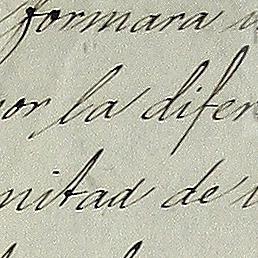 formara
or la difer
nitad de